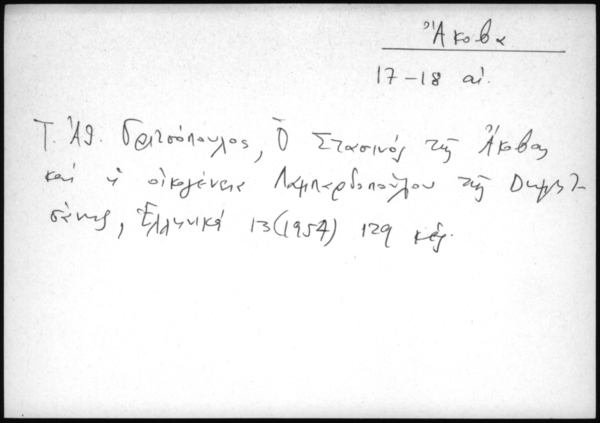 Ἄκοβα
17-18 αἰ.
Τ. Ἀθ. Γριτσόπουλος, Ὁ Στασινός τῆς Ἄκοβας
καί ἡ οἰκογένεια Λαμπαρδοπούλου τῆς Δημητ-
σάνης, Ἑλληνικά 13 (1954) 129 κἑξ.